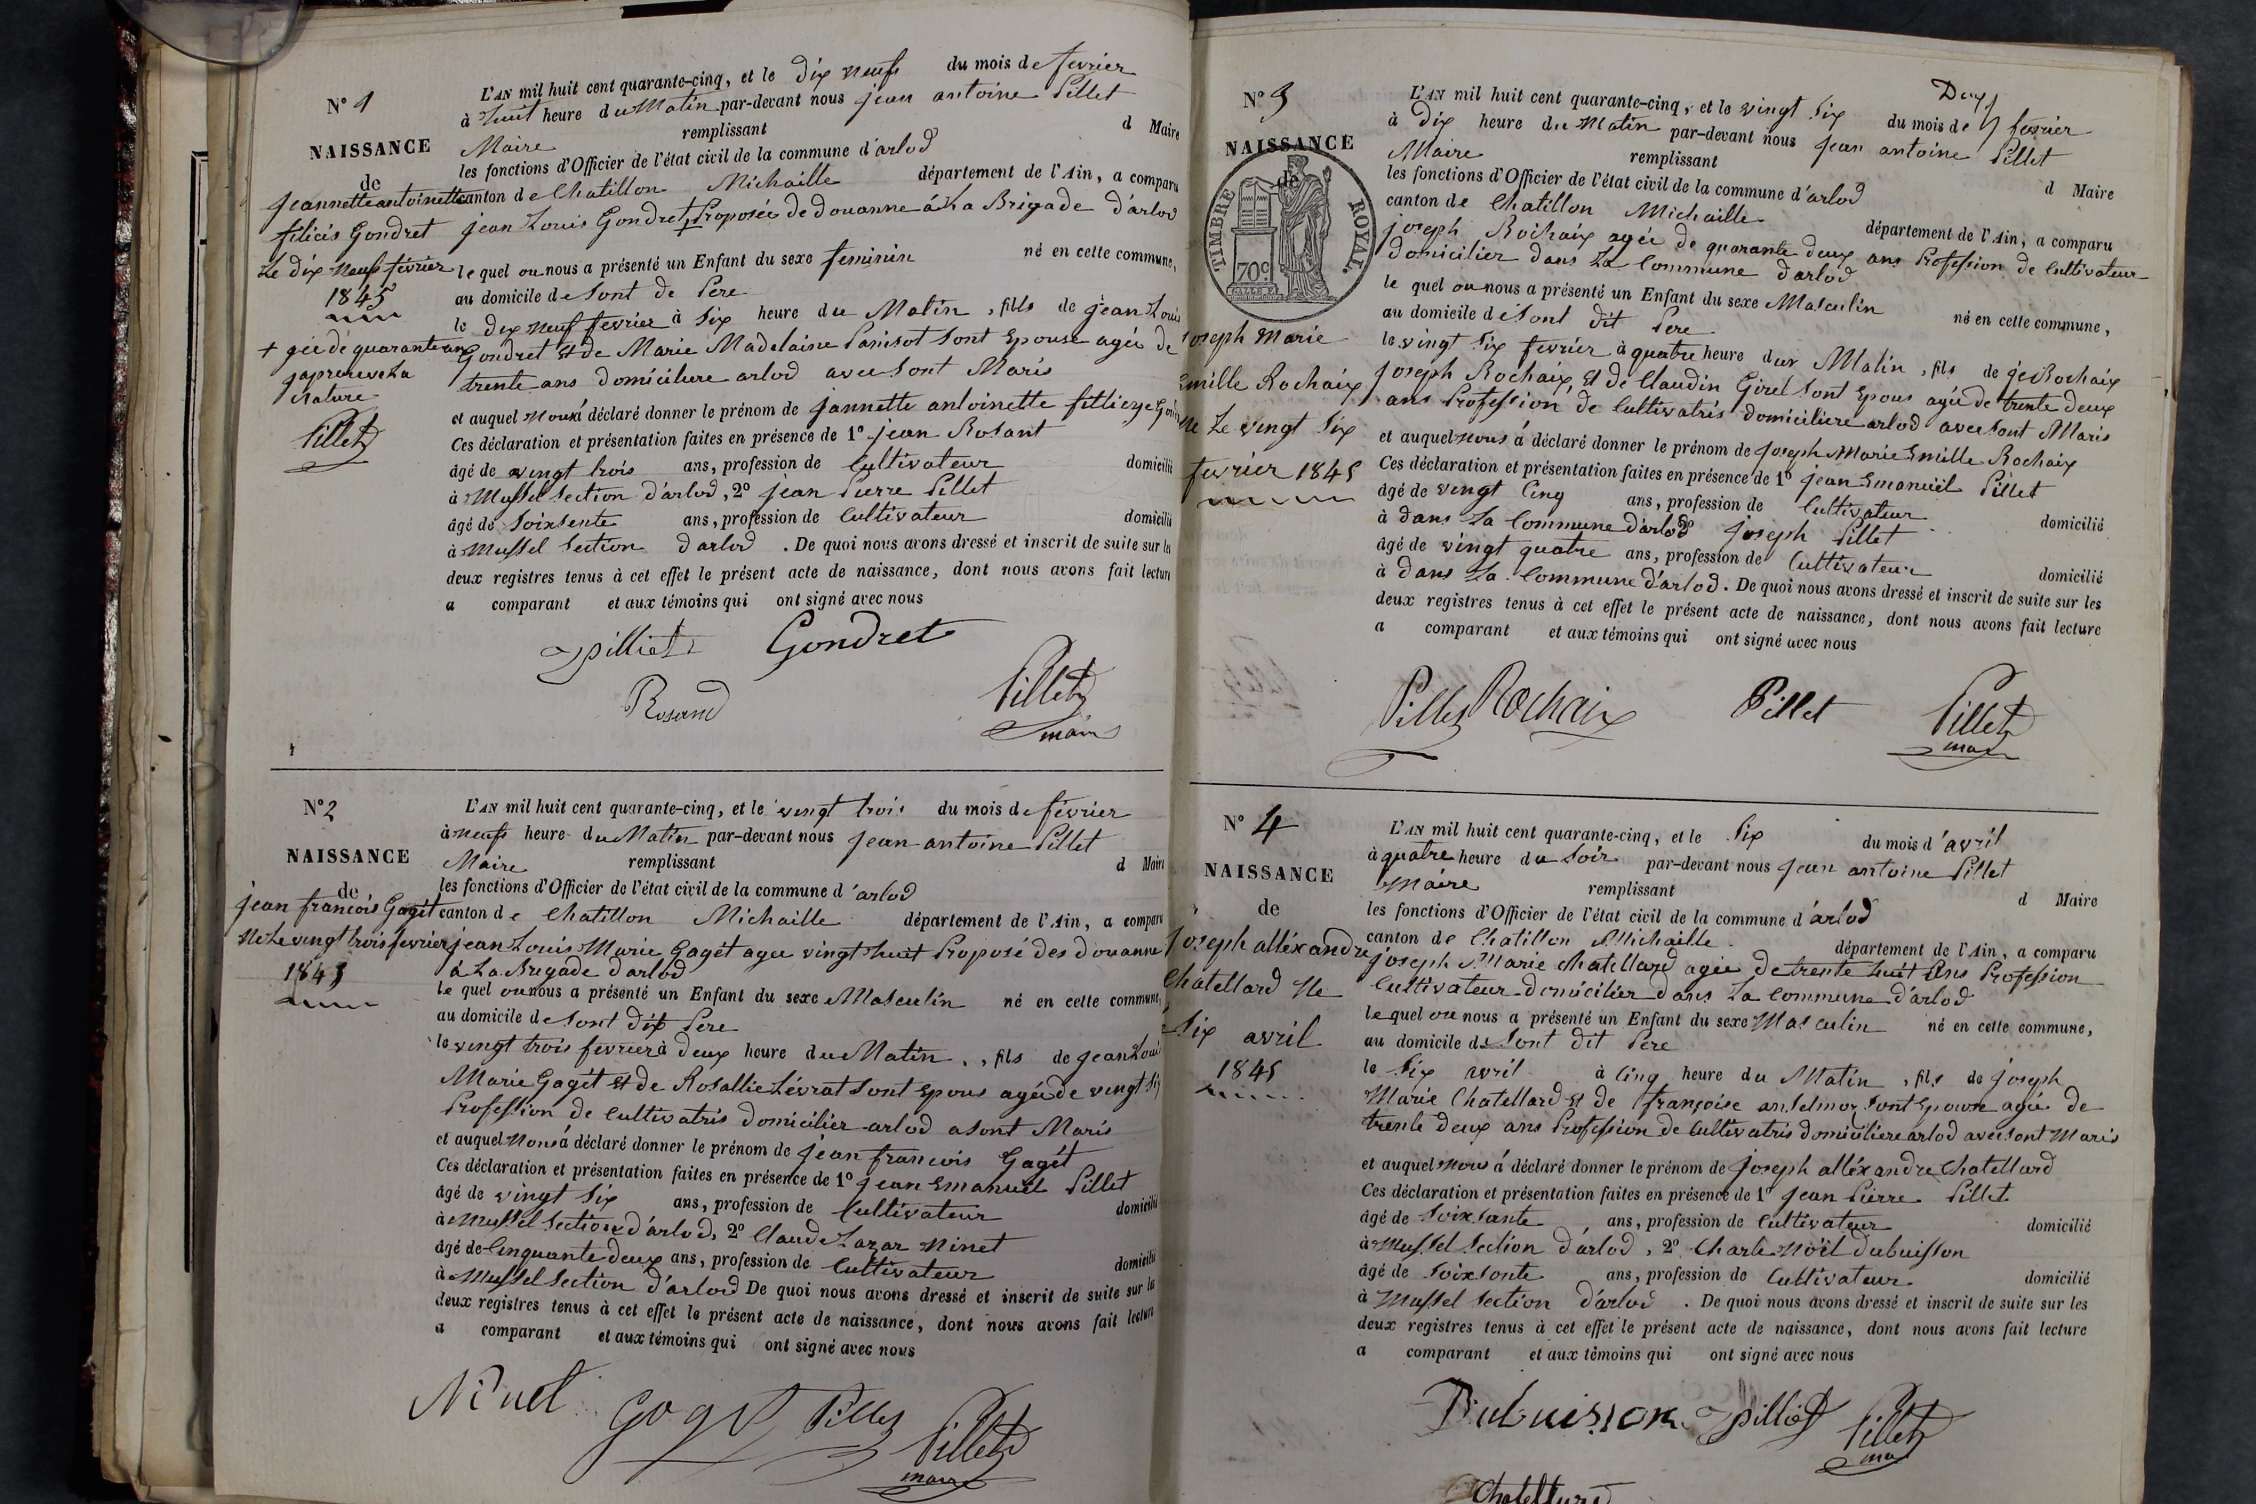 N° 1
NAISSANCE
de
jeannette antoinette
félicie Gondret
Le dix neuf février
1845
+ gée de quarante an
japreuve la
rature
Pillet
L'AN mil huit cent quarante-cinq, et le dix neuf du mois de février
à huit heure du Matin par-devant nous jean antoine Pillet
Maire remplissant d Maire
les fonctions d'Officier de l'état civil de la commune d'arlod
canton de Chatillon Michaille département de l'Ain, a comparu
jean Louis Gondret + Proposée de douanne á La Brigade d'arlod
le quel ou nous a présenté un Enfant du sexe feminin né en cette commune,
au domicile de sont de Pere
le dix neuf fevrier à six heure du Matin, fils de jean Louis
Gondret Et de Marie Madelaine Panisot sont Epouse agée de
trente ans domiciliere arlod avec sont Maris
et auquel nous á déclaré donner le prénom de jannette antoinette
Ces déclaration et présentation faites en présence de 1° jean Rosant
âgé de vingt trois ans, profession de Cultivateur domicilié
à Mussel section d'arlod, 2° jean Pierre Pillet
âgé de soixsente ans, profession de Cultivateur domicilié
à Mussel section d'arlod. De quoi nous avons dressé et inscrit de suite sur les
deux registres tenus à cet effet le présent acte de naissance, dont nous avons fait lecture
a comparant et aux témoins qui ont signé avec nous
jpilliet Gondret
Rosand
Pillet
maire
N° 2
NAISSANCE
de
jean francois Gagét
Né Le vingt trois fevrier
1845
L'AN mil huit cent quarante-cinq, et le vingt trois du mois de février
à neuf heure du Matin par-devant nous jean antoine Pillet
Maire remplissant d Maire
les fonctions d'Officier de l'état civil de la commune d'arlod
canton de Chatillon Michaille département de l'Ain, a comparu
jean Louis Marie Gagét agée vingt huit Proposé des douanne
á La Brigade d'arlod
le quel ou nous a présenté un Enfant du sexe Masculin né en cette commune,
au domicile de sont dit Pere
le vingt trois fevrier à deux heure du Matin, fils de jean Louis
Marie Gagét Et de Rosallie Lévrat sont Epous agée de vingt six
Profession de Cultivatris domicilier arlod a sont Maris
et auquel Nous á déclaré donner le prénom de jean francois Gagét
Ces déclaration et présentation faites en présence de 1° jean Emanuél Pillet
âgé de vingt six ans, profession de Cultivateur domicilié
à Mussel section d'arlod, 2° Claude Lazar Ninet
âgé de Cinquante deux ans, profession de Cultivateur domicilié
à Mussel section d'arlod De quoi nous avons dressé et inscrit de suite sur les
deux registres tenus à cet effet le présent acte de naissance, dont nous avons fait lecture
a comparant et aux témoins qui ont signé avec nous
Ninet Gaget Pillet Pillet
maire
Deux
N° 3
NAISSANCE
de
TIMBRE ROYAL.
70c
joseph Marie
Emille Rochaix
Né Le vingt six
fevrier 1845
L'AN mil huit cent quarante-cinq, et le vingt six du mois de février
à dix heure du Matin par-devant nous jean antoine Pillet
Maire remplissant d Maire
les fonctions d'Officier de l'état civil de la commune d'arlod
canton de Chatillon Michaille département de l'Ain, a comparu
joseph Rochaix agée de quarante deux ans Profession de Cultivateur
domicilier dans La Commune d'arlod
le quel ou nous a présenté un Enfant du sexe Masculin né en cette commune,
au domicile de sont dit Pere
le vingt six fevrier à quatre heure du Matin, fils de je Rochaix
joseph Rochaix, Et de Claudin Girel sont Epous agée de trente deux
ans Profession de Cultivatris domiciliere arlod avec sont Maris
et auquel nous á déclaré donner le prénom de joseph Marie Emille Rochaix
Ces déclaration et présentation faites en présence de 1° jean Emanuél Pillet
âgé de vingt Cinq ans, profession de Cultivateur domicilié
à dans La Commune d'arlod 2° joseph Pillet
âgé de vingt quatre ans, profession de Cultivateur domicilié
à dans La Commune d'arlod. De quoi nous avons dressé et inscrit de suite sur les
deux registres tenus à cet effet le présent acte de naissance, dont nous avons fait lecture
a comparant et aux témoins qui ont signé avec nous
Pillet Rochaix Pillet Pillet
N° 4
NAISSANCE
de
joseph alléxandre
Chatellard Né
Six avril
1845
L'AN mil huit cent quarante-cinq, et le six du mois d'avril
à quatre heure du Soir par-devant nous jean antoine Pillet
Maire remplissant d Maire
les fonctions d'Officier de l'état civil de la commune d'arlod
canton de Chatillon Michaille département de l'Ain, a comparu
joseph Marie Chatellard agée de trente huit ans Profession
Cultivateur domicilier dans La Commune d'arlod
le quel ou nous a présenté un Enfant du sexe Masculin né en cette commune,
au domicile de sont dit Pere
le six avril à Cinq heure du Matin, fils de joseph
Marie Chatellard Et de françoise sont Epouse agée de
trente deux ans Profession de Cultivatris domiciliere arlod avec sont Maris
et auquel nous á déclaré donner le prénom de joseph alléxandre Chatellard
Ces déclaration et présentation faites en présence de 1° jean Pierre Pillet
âgé de soixsante ans, profession de Cultivateur domicilié
à Mussel section d'arlod, 2° Charle Noël dubuisson
âgé de soixsonte ans, profession de Cultivateur domicilié
à Mussel section d'arlod. De quoi nous avons dressé et inscrit de suite sur les
deux registres tenus à cet effet le présent acte de naissance, dont nous avons fait lecture
a comparant et aux témoins qui ont signé avec nous
Dubuisson jpilliet Pillet